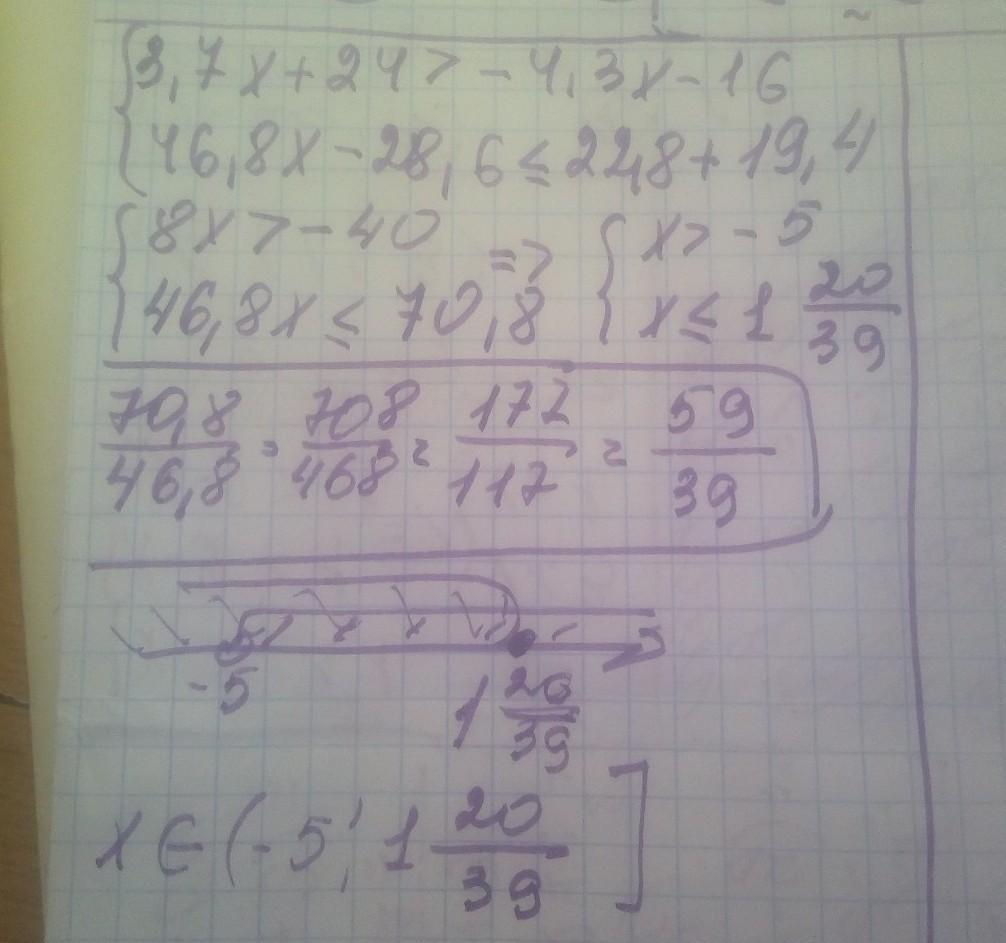 {3,7x+24>-4,3x-16
{46,8x-28,6≤22,8+19,4
{8x>-40 => {x>-5
{46,8x≤70,8 {x≤1 20/39
70,8/46,8 = 708/468 = 177/117 = 59/39
-5 1 20/39
x∈(-5; 1 20/39]